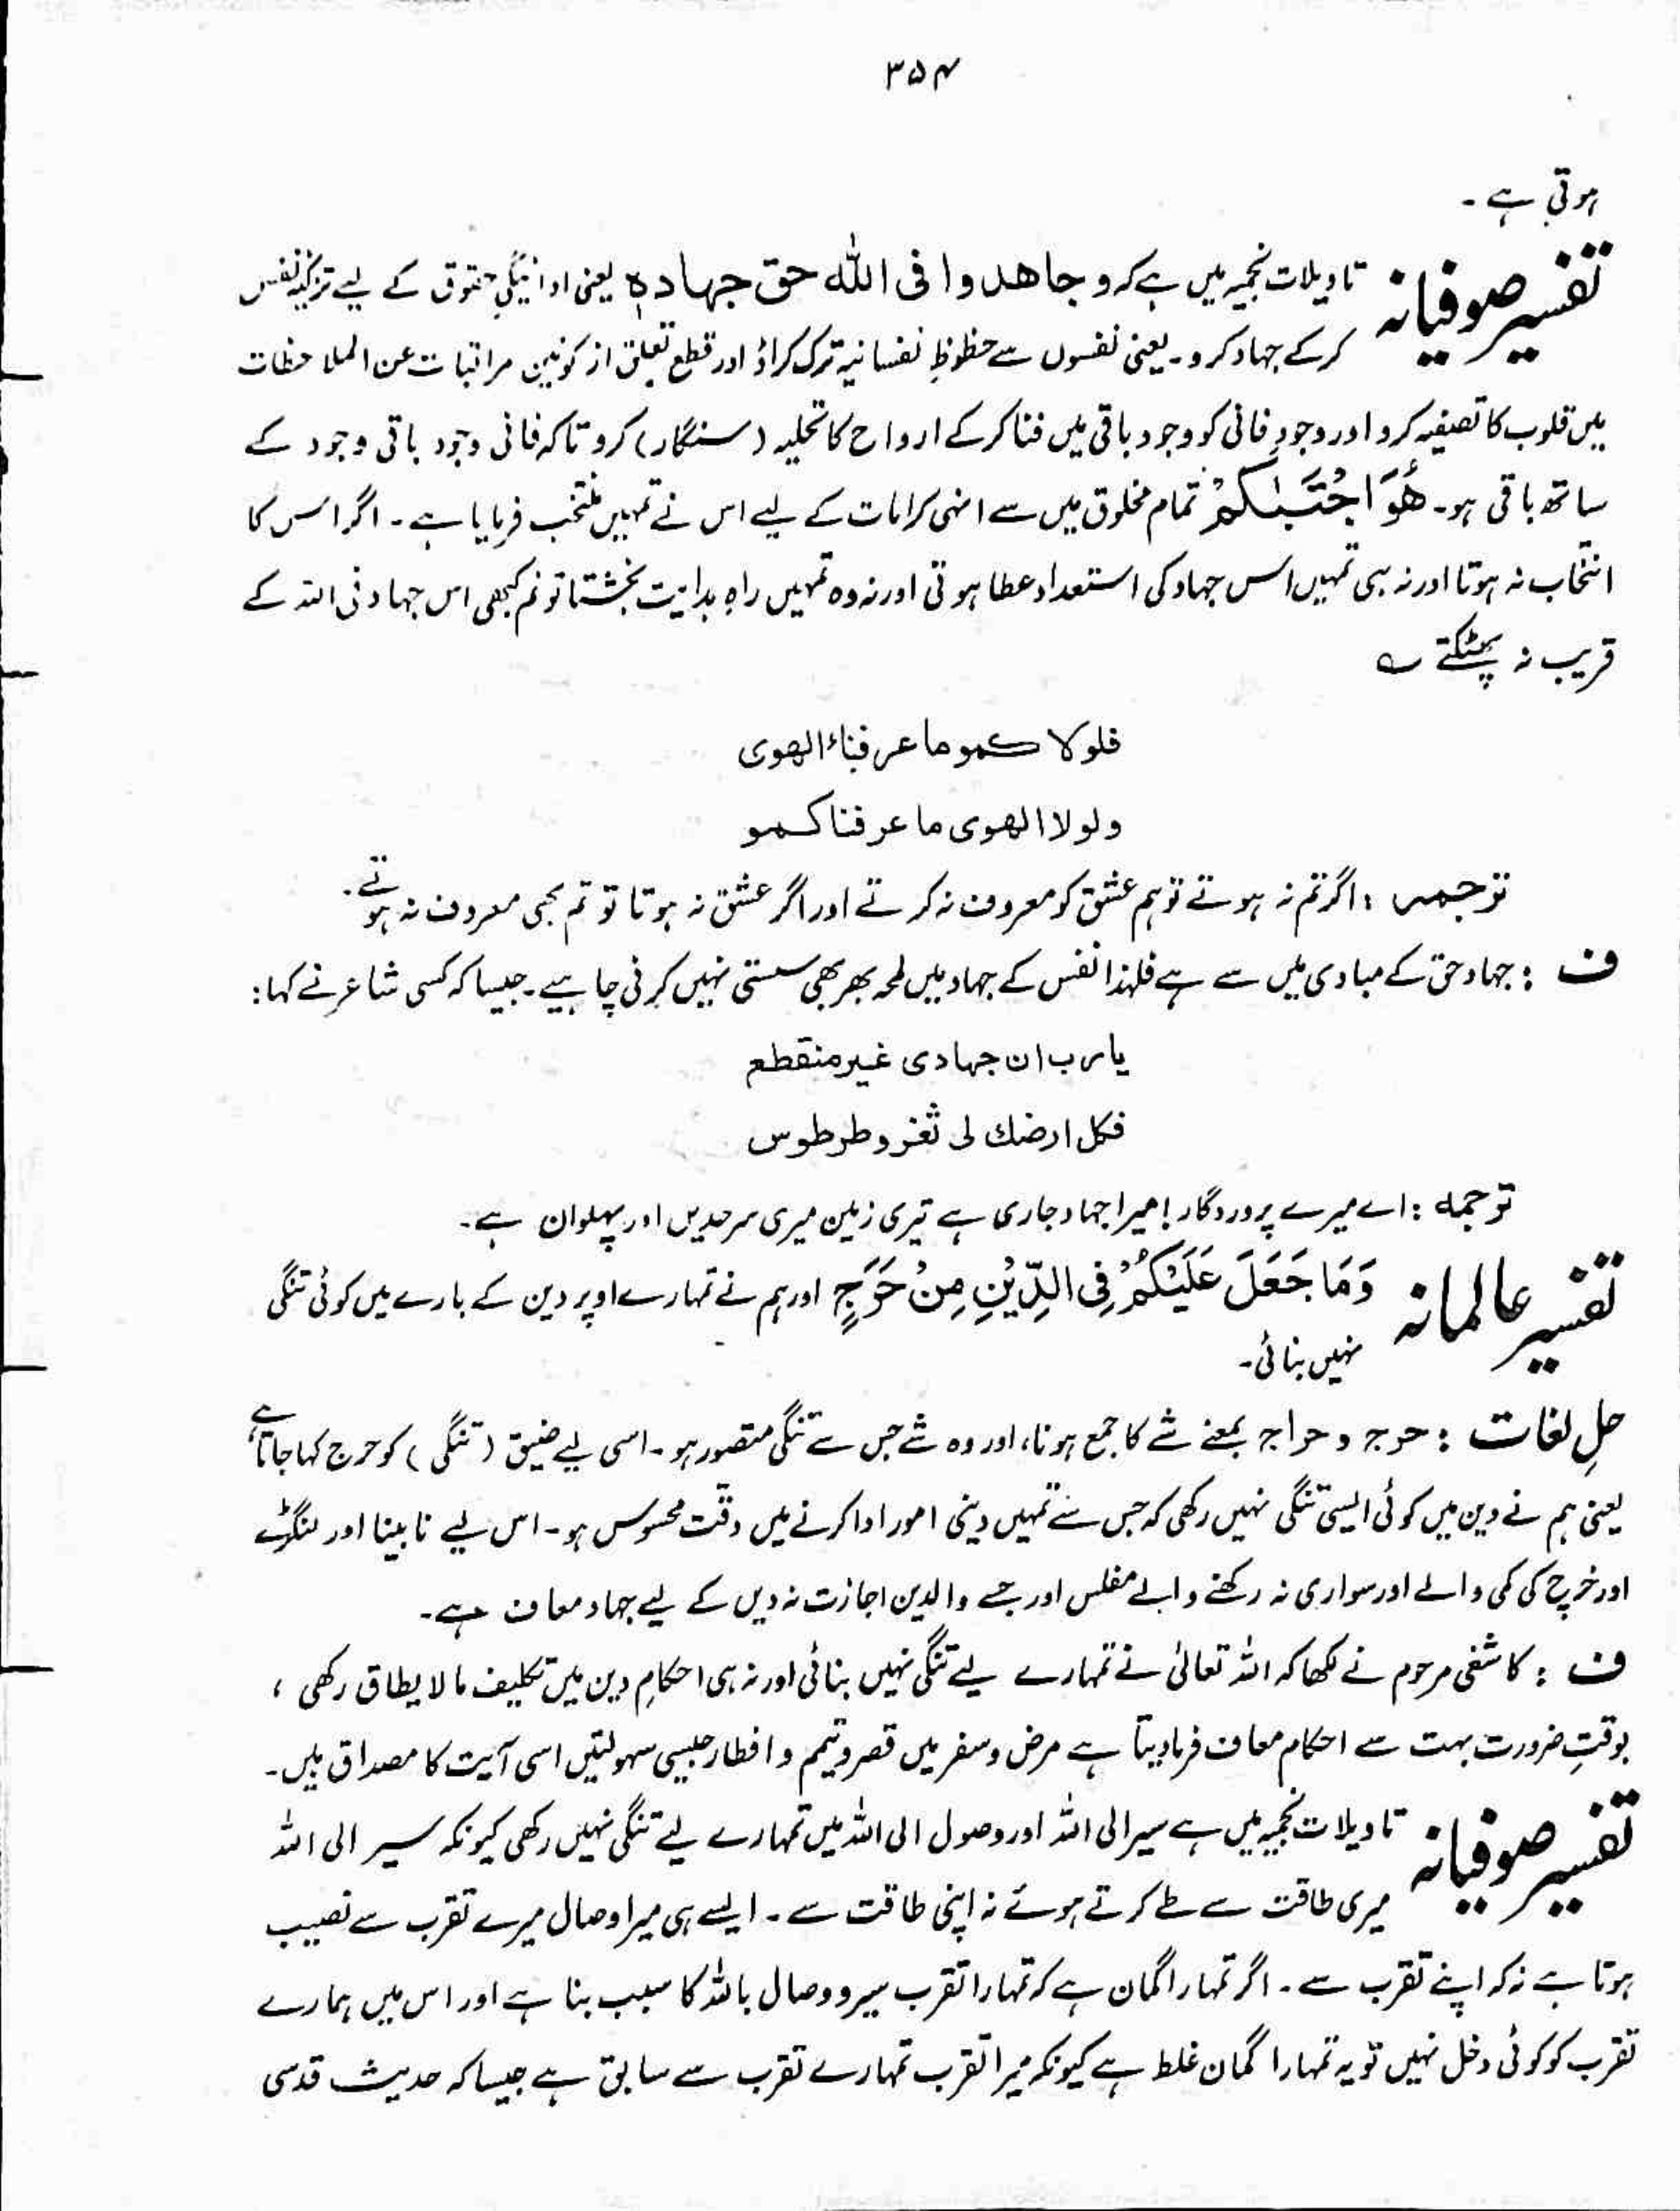 ۳۵۴
ہوتی ہے ۔
تفسیر صوفیانہ تاویلات نجمیہ میں ہے کہ و جاھدوا فی اللہ حق جہادہ یعنی ادائیگیِ حقوق کے لیے تزکیۂ نفس
کرکے جہاد کرو ۔ یعنی نفسوں سے حظوظِ نفسانیہ ترک کراؤ اور قطع تعلق از کونین مراقبات عن الملاحظات
میں قلوب کا تصفیہ کرو اور وجودِ فانی کو وجود باقی میں فنا کرکے ارواح کا تحلیہ (سنگار) کرو تاکہ فانی وجود باقی وجود کے
ساتھ باقی ہو ۔ ھُوَ اجْتَبٰىكُمْ تمام مخلوق میں سے انہی کرامات کے لیے اس نے تمہیں منتخب فرمایا ہے ۔ اگر اس کا
انتخاب نہ ہوتا اور نہ ہی تمہیں اس جہاد کی استعداد عطا ہوتی اور نہ وہ تمہیں راہِ ہدایت بخشتا تو تم کبھی اس جہاد فی اللہ کے
قریب نہ پھٹکتے ؎
فلولا کمو ما عرفناء الھوی
ولولا الھوی ما عرفنا کمو
ترجمہ : اگر تم نہ ہوتے تو ہم عشق کو معروف نہ کرتے اور اگر عشق نہ ہوتا تو تم بھی معروف نہ ہوتے ۔
ف : جہاد حق کے مبادی میں سے ہے فلہذا نفس کے جہاد میں لمحہ بھر بھی سستی نہیں کرنی چاہیے ۔ جیسا کہ کسی شاعر نے کہا :
یا رب ان جہادی غیر منقطع
فکل ارضك لی ثغر وطرطوس
ترجمہ : اے میرے پروردگار ! میرا جہاد جاری ہے تیری زمین میری سرحدیں اور پہلوان ہے ۔
تفسیر عالمانہ وَمَا جَعَلَ عَلَيْكُمْ فِى الدِّيْنِ مِنْ حَرَجٍ اور ہم نے تمہارے اوپر دین کے بارے میں کوئی تنگی
نہیں بنائی ۔
حلِ لغات : حرج و حراج بمعنے شے کا جمع ہونا ، اور وہ شے جس سے تنگی متصور ہو ۔ اسی لیے ضیق (تنگی) کو حرج کہا جاتا ہے ،
یعنی ہم نے دین میں کوئی ایسی تنگی نہیں رکھی کہ جس سے تمہیں دینی امور ادا کرنے میں دقّت محسوس ہو ۔ اس لیے نابینا اور لنگڑے
اور خرچ کی کمی والے اور سواری نہ رکھنے والے مفلس اور جسے والدین اجازت نہ دیں کے لیے جہاد معاف ہے ۔
ف : کاشفی مرحوم نے لکھا کہ اللہ تعالیٰ نے تمہارے لیے تنگی نہیں بنائی اور نہ ہی احکامِ دین میں تکلیف ما لا یطاق رکھی ،
بوقتِ ضرورت بہت سے احکام معاف فرما دیتا ہے مرض و سفر میں قصر و تیمم و افطار جیسی سہولتیں اسی آیت کا مصداق ہیں ۔
تفسیر صوفیانہ تاویلات نجمیہ میں ہے سیر الی اللہ اور وصول الی اللہ میں تمہارے لیے تنگی نہیں رکھی کیونکہ سیر الی اللہ
میری طاقت سے طے کرتے ہوئے نہ اپنی طاقت سے ۔ ایسے ہی میرا وصال میرے تقرب سے نصیب
ہوتا ہے نہ کہ اپنے تقرب سے ۔ اگر تمہارا گمان ہے کہ تمہارا تقرب سیر و وصال باللہ کا سبب بنا ہے اور اس میں ہمارے
تقرب کو کوئی دخل نہیں تو یہ تمہارا گمان غلط ہے کیونکہ میرا تقرب تمہارے تقرب سے سابق ہے جیسا کہ حدیث قدسی